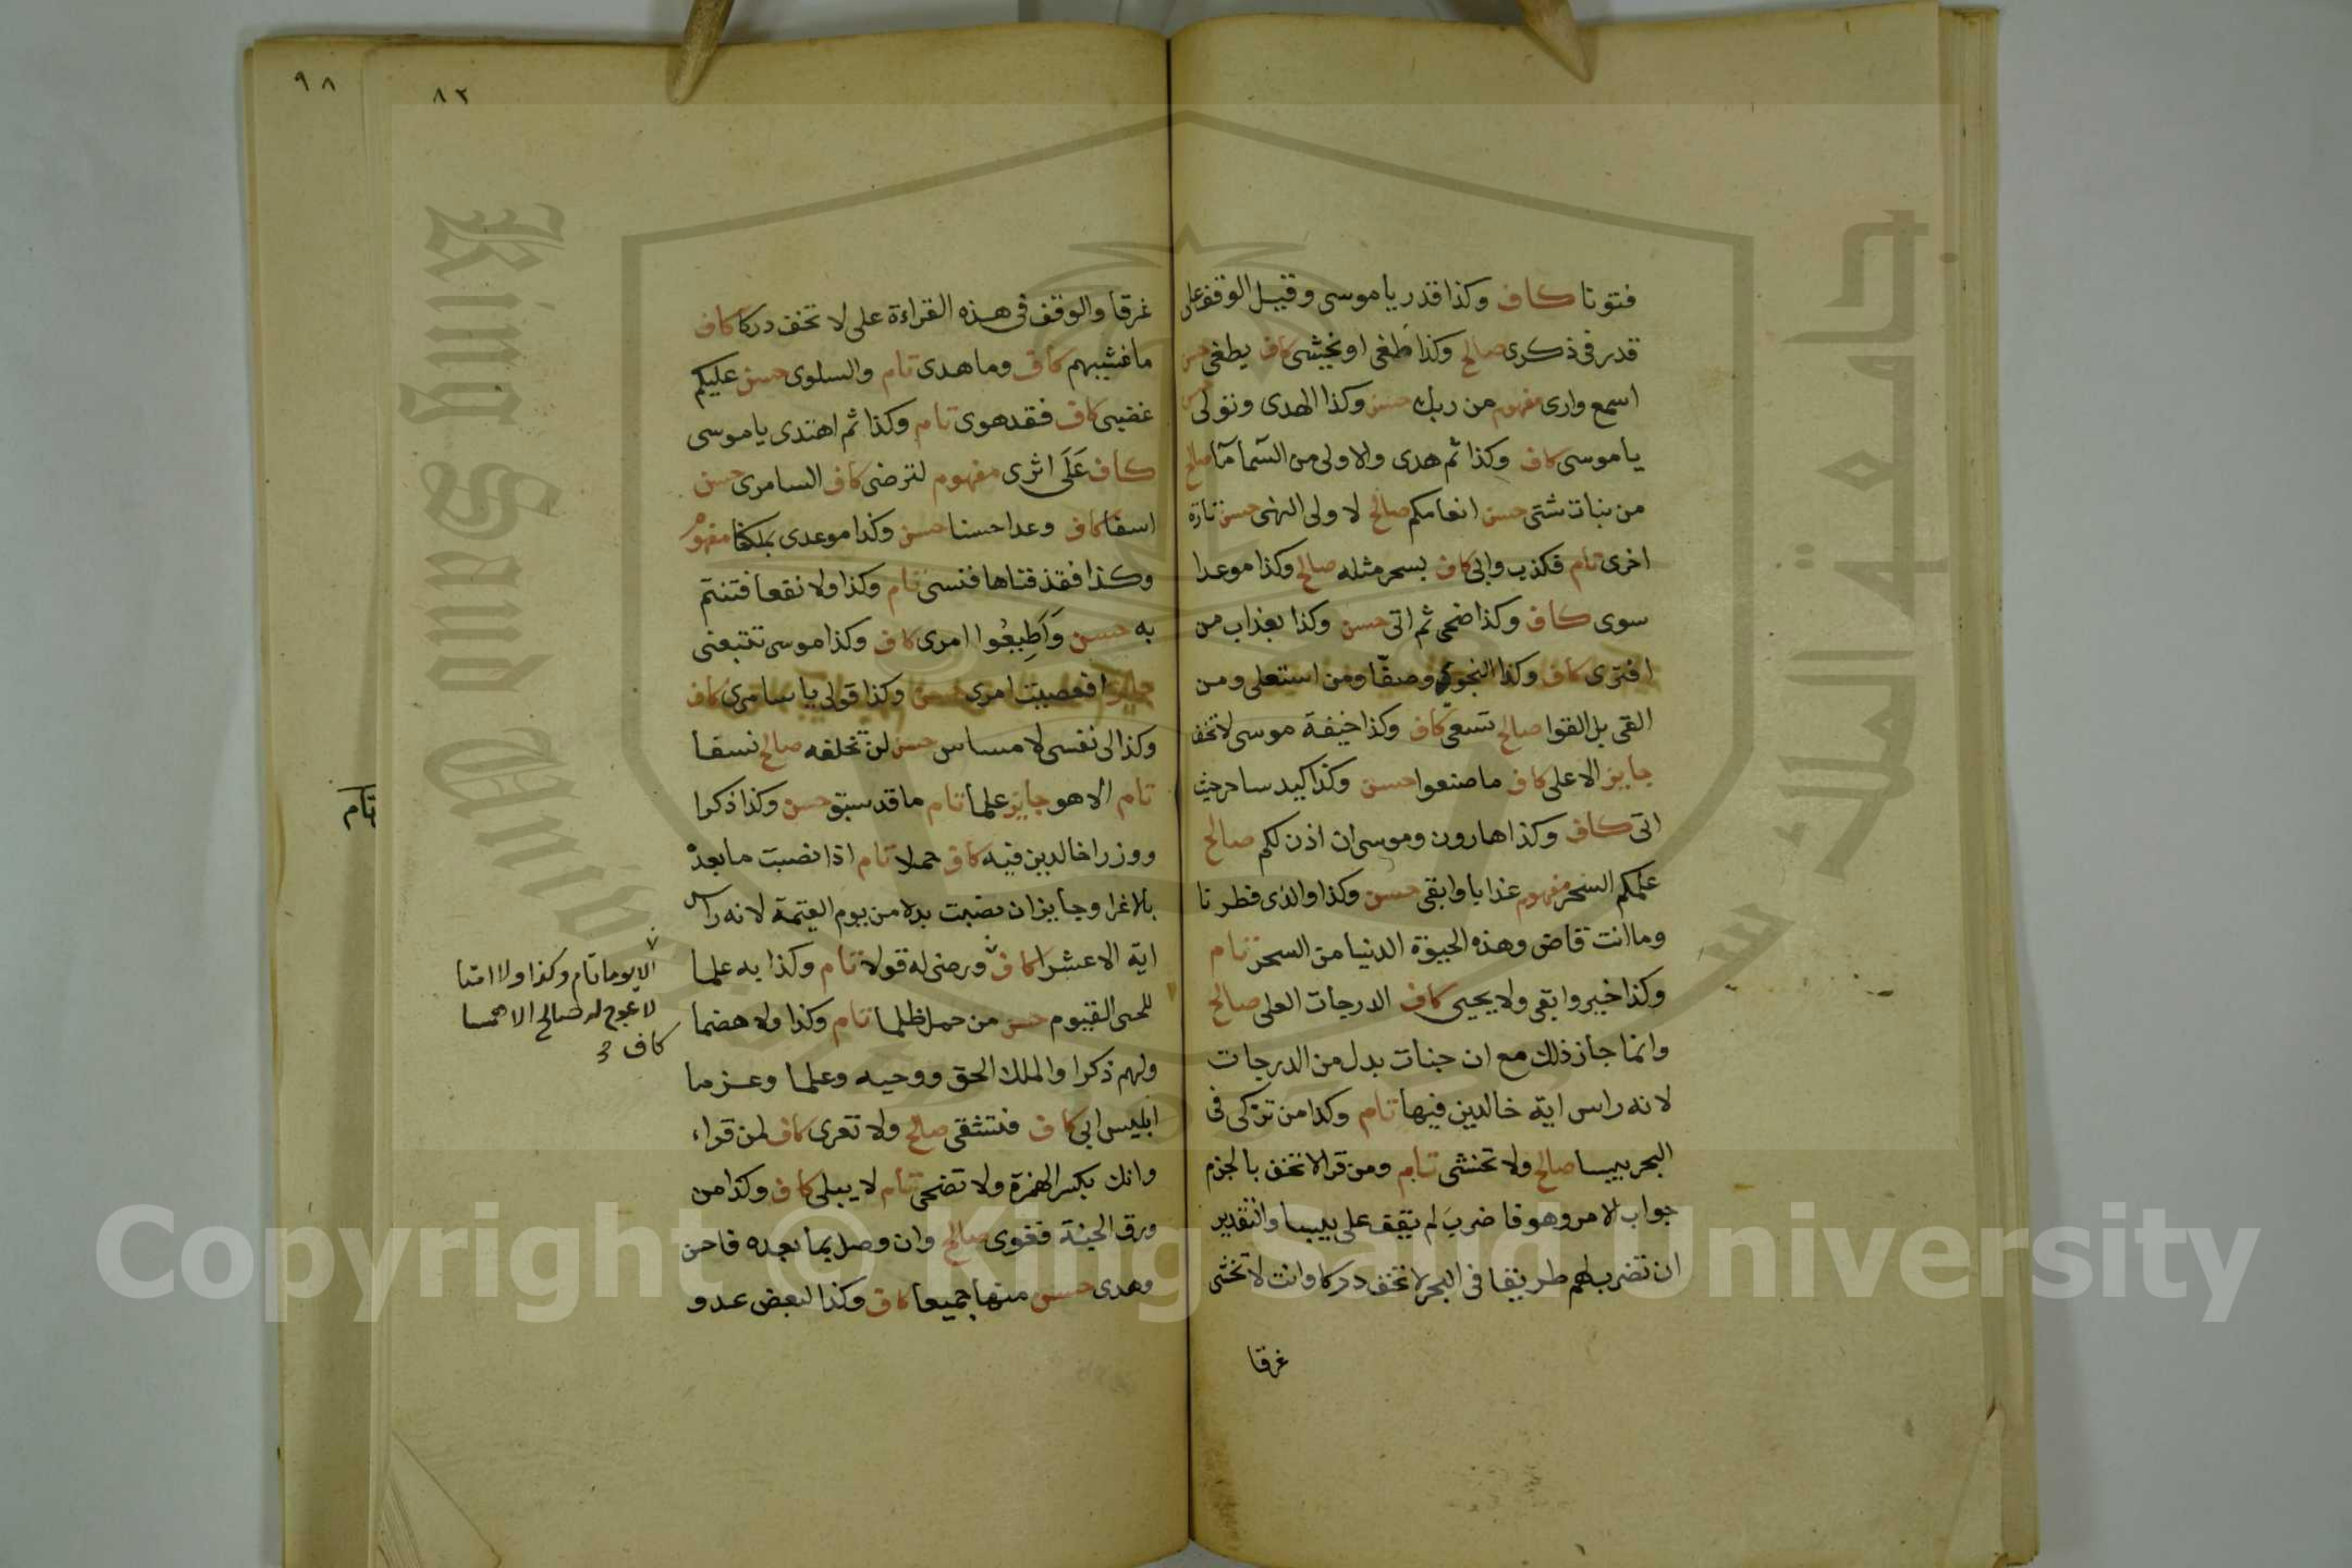 فتونا كاف وكذا قدر يا موسى وقيل الوقف على
قدر في ذكرى صالح وكذا طغى او يخشى كاف يطغى حسن
اسمع وارى مفهوم من ربك حسن وكذا الهدى وتولى
يا موسى كاف وكذا ثم هدى والاولى من السما ما صالح
من نبات شتى حسن انعامكم صالح لاولى النهى حسن تارة
اخرى تام فكذب وابى كاف بسحر مثله صالح وكذا موعدا
سوى كاف وكذا ضحى ثم اتى حسن وكذا بعذاب من
افترى كاف وكذا النجوى وصفا ومن استعلى ومن
القى بل القوا صالح تسعى كاف وكذا خيفة موسى لا تخف
جايز الاعلى كاف ما صنعوا حسن وكذا كيد ساحر حيث
اتى كاف وكذا هارون وموسى ان اذن لكم صالح
علمكم السحر مفهوم عذابا وابقى حسن وكذا والذى فطرنا
وما انت قاض وهذه الحيوة الدنيا من السحر تام
وكذا خير وابقى ولا يحيى كاف الدرجات العلى صالح
وانما جاز ذلك مع ان جنات بدل من الدرجات
لانه راس اية خالدين فيها تام وكذا من تزكى في
البحر يبسا صالح ولا تخشى تام ومن قرا لا تخف بالجزم
جواب الامر وهو فاضرب لم يقف على يبسا والتقدير
ان تضرب لهم طريقا في البحر لا تخف دركا وانت لا تخشى
غرقا
٩٨
٨٢
غرقا والوقف في هذه القراءة على لا تخف دركا كاف
ما غشيهم كاف وما هدى تام والسلوى حسن عليكم
غضبى كاف فقد هوى تام وكذا ثم اهتدى يا موسى
كاف عَلَى اثرى مفهوم لترضى كاف السامرى حسن
اسفا كاف وعدا حسنا حسن وكذا موعدى بملكنا مفهوم
وكذا فقذفناها فنسى تام وكذا ولا نفعا فتنتم
به حسن وَاَطِيعُوا امرى كاف وكذا موسى تتبعنى
جايز افعصيت امرى حسن وكذا قولى يا سامرى كاف
وكذا لى نفسى لا مساس حسن لن تخلفه صالح نسفا
تام الا هو جايز علما تام ما قد سبق حسن وكذا ذكرا
ووزرا خالدين فيه كاف حملا تام اذا نصبت ما بعده
بالاغرا وجايز ان نصبت بدلا من يوم القيمة لانه راس
اية الا عشرا كاف ورضى له قولا تام وكذا به علما
للحى القيوم حسن من حمل ظلما تام وكذا ولا هضما
ولهم ذكرا والملك الحق ووحيه وعلما وعزما
ابليس ابى كاف فتشقى صالح ولا تعرى كاف لمن قراء
وانك بكسر الهمزة ولا تضحى تام لا يبلى كاف وكذا من
ورق الجنة فغوى صالح وان وصل بما بعده فاحسن
وهدى حسن منها جميعا كاف وكذا لبعض عدو
الا يوما تام وكذا ولا امتا
لا عوج له صالح الا همسا
كاف
تام
King Saud University
جامعة الملك سعود
Copyright © King Saud University